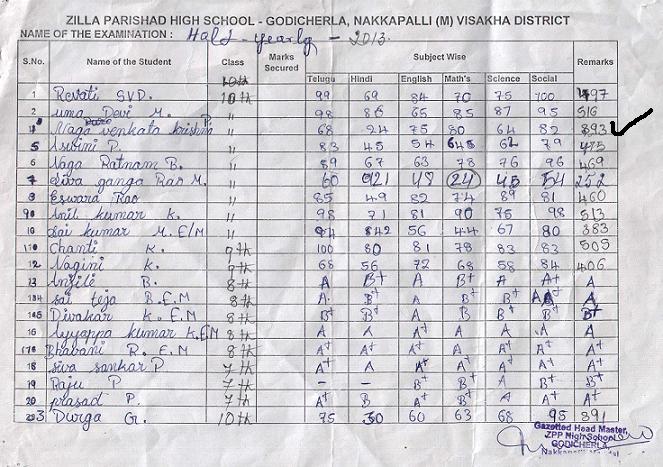 ZILLA PARISHAD HIGH SCHOOL - GODICHERLA, NAKKAPALLI (M) VISAKHA DISTRICT
NAME OF THE EXAMINATION : Half-yearly - 2013.
S.No. Name of the Student Class Marks Secured Subject Wise Remarks
Telugu Hindi English Math's Science Social
1 Revati S.V.D. 10th 99 69 84 70 75 100 497
2 Uma Devi M. " 98 86 65 85 87 95 516
Naga venkata krishna P. " 68 24 75 80 64 82 393
5 Asvini P. " 83 45 54 62 79
6 Naga Ratnam B. " 89 67 63 78 76 96 469
7 Siva ganga Rao M. " 60 21 48 24 45 54 252
Eswara Rao " 85 49 82 74 89 81 460
Anil kumar K. " 98 71 81 90 75 98 513
10 Sai kumar M. E/M " 94 42 56 44 67 80 383
Chanti K. 9th 100 80 81 78 83 83 505
12 Nagini K. 9th 68 56 72 68 58 84 406
13 Anjili B. 8th A B+ A B+ A A+ A
Sai teja B.E.M 8th A B+ A B+ B+ A
Divakar K. E.M 8th B+ B+ A B+ B+ B+
Ayyappa kumar K.E.M 8th A A A+ A A A
Bhavani R. E.M 8th A+ A+ A+ A A+ A+ A+
18 Siva sankar P 7th A+ A A+ A+ A+ A+ A+
19 Raju P 7th - - B+ B+ A B+ B+
20 Prasad P. 7th A B A B+ A A+ A+
Durga G. 10th 75 30 60 63 68 95 391
Gazetted Head Master,
ZPP High School
GODICHERLA,